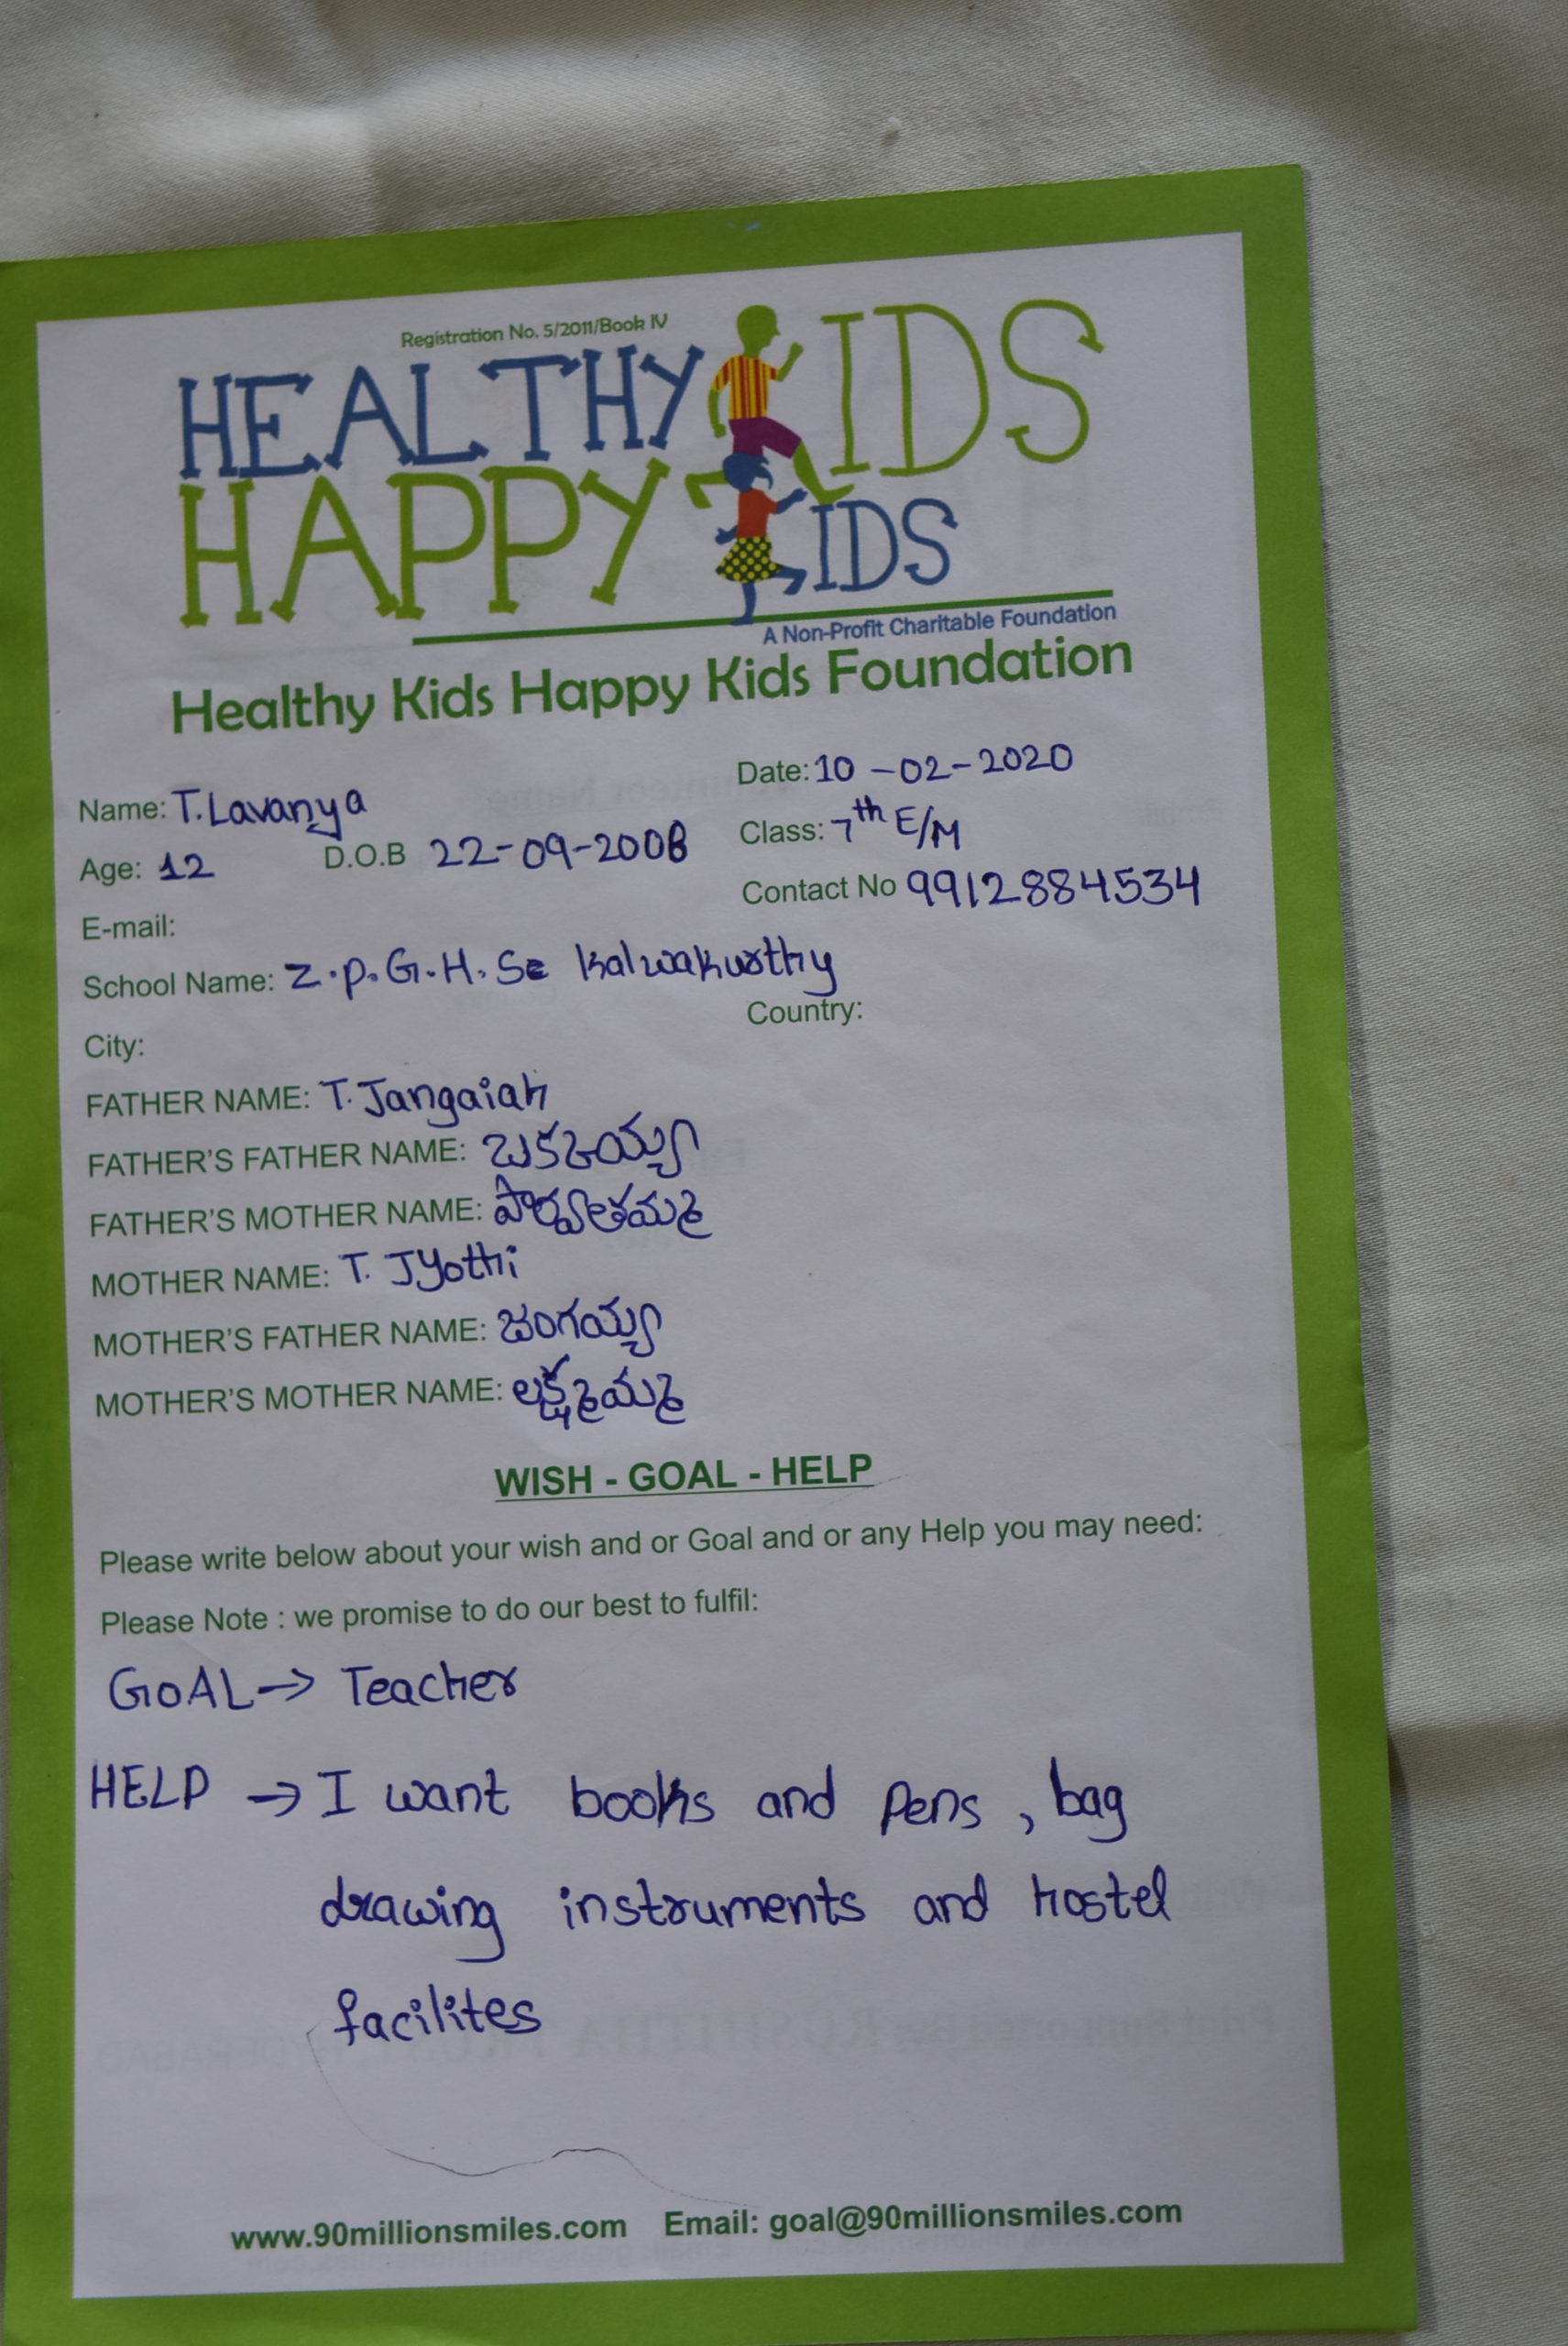 Registration No. 5/2011/Book IV
HEALTHY KIDS
HAPPY KIDS
A Non-Profit Charitable Foundation
Healthy Kids Happy Kids Foundation
Date: 10-02-2020
Name: T.Lavanya
Class: 7th E/M
Age: 12 D.O.B 22-09-2008
Contact No 9912884534
E-mail:
School Name: Z.P.G.H.S Kalwakurthy
Country:
City:
FATHER NAME: T. Jangaiah
FATHER'S FATHER NAME: బక్కయ్య
FATHER'S MOTHER NAME: పార్వతమ్మ
MOTHER NAME: T. Jyothi
MOTHER'S FATHER NAME: జంగయ్య
MOTHER'S MOTHER NAME: లక్ష్మమ్మ
WISH - GOAL - HELP
Please write below about your wish and or Goal and or any Help you may need:
Please Note : we promise to do our best to fulfil:
GOAL → Teacher
HELP → I want books and Pens , bag
drawing instruments and hostel
facilites
www.90millionsmiles.com Email: goal@90millionsmiles.com